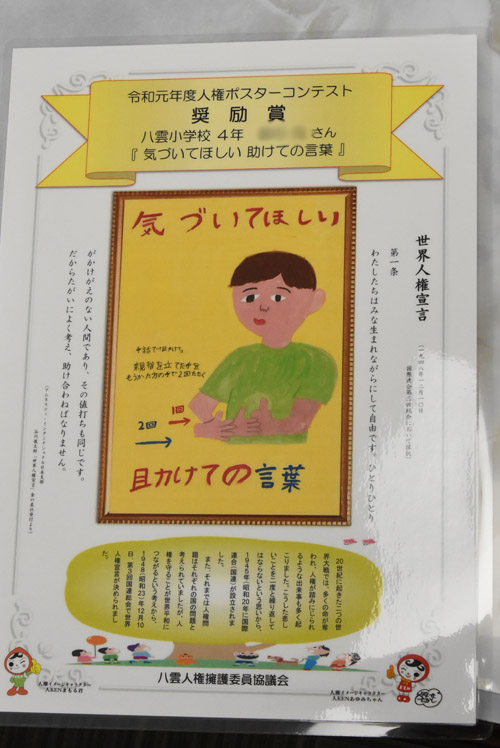 令和元年度人権ポスターコンテスト
奨励賞
八雲小学校 4年 さん
『 気づいてほしい 助けての言葉 』
気づいてほしい
手話では助けて。
親指を立てた手を
もう片方の手で2回たたく
1回
2回
助けての言葉
世界人権宣言
(一九四八年一二月一〇日
国際連合第三回総会において採択)
第一条
わたしたちはみな生まれながらにして自由です。ひとりひとり
がかけがえのない人間であり、その値打ちも同じです。
だからたがいによく考え、助け合わねばなりません。
20世紀に起きた二つの世
界大戦では、多くの命が奪
われ、人権が踏みにじられ
るような出来事も多く起
こりました。こうした悲し
いことを二度と繰り返して
はならないという思いから、
1945(昭和20)年に国際
連合(国連)が設立されま
した。
また、それまでは人権問
題はそれぞれの国の問題と
考えられていましたが、人
権を守ることが世界平和に
つながるという考えから、
1948(昭和23)年12月10
日、第3回国連総会で世界
人権宣言が決められまし
た。
八雲人権擁護委員協議会
人権イメージキャラクター
人KENまもる君
人権イメージキャラクター
人KENあゆみちゃん